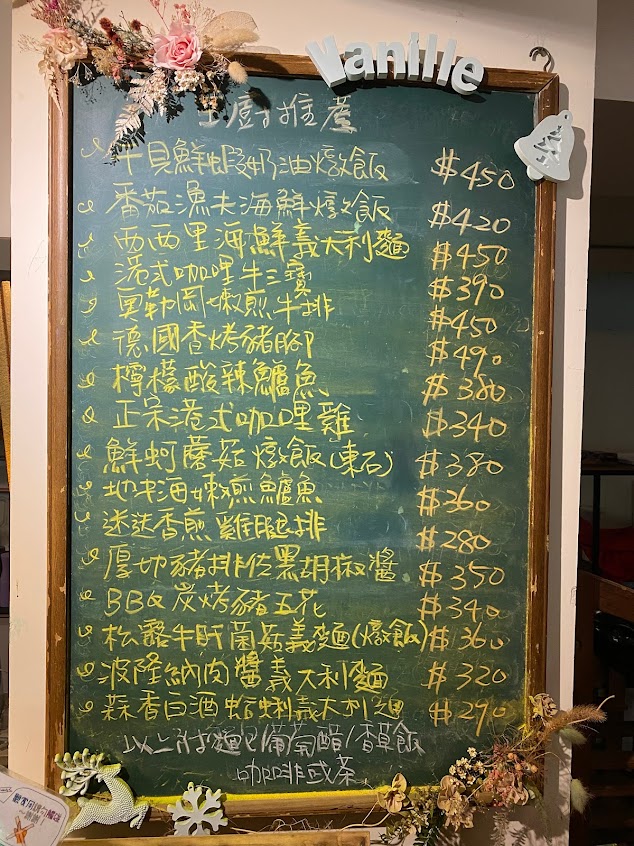 Vanille
主廚推薦
干貝鮮蝦奶油燉飯 $450
番茄漁夫海鮮燉飯 $420
西西里海鮮義大利麵 $450
港式咖哩牛三寶 $390
奧勒岡嫩煎牛排 $450
德國香烤豬腳 $490
檸檬酸辣鱸魚 $380
正宗港式咖哩雞 $340
鮮蚵蘑菇燉飯(東石) $380
地中海嫩煎鱸魚 $360
迷迭香煎雞腿排 $280
厚切豬排佐黑胡麻醬 $350
BBQ 炭烤豬五花 $340
松露牛肝菌菇義麵(燉飯) $360
波隆納肉醬義大利麵 $320
蒜香白酒蛤蜊義大利麵 $290
以上附 葡萄醋/香草飯
咖啡或茶